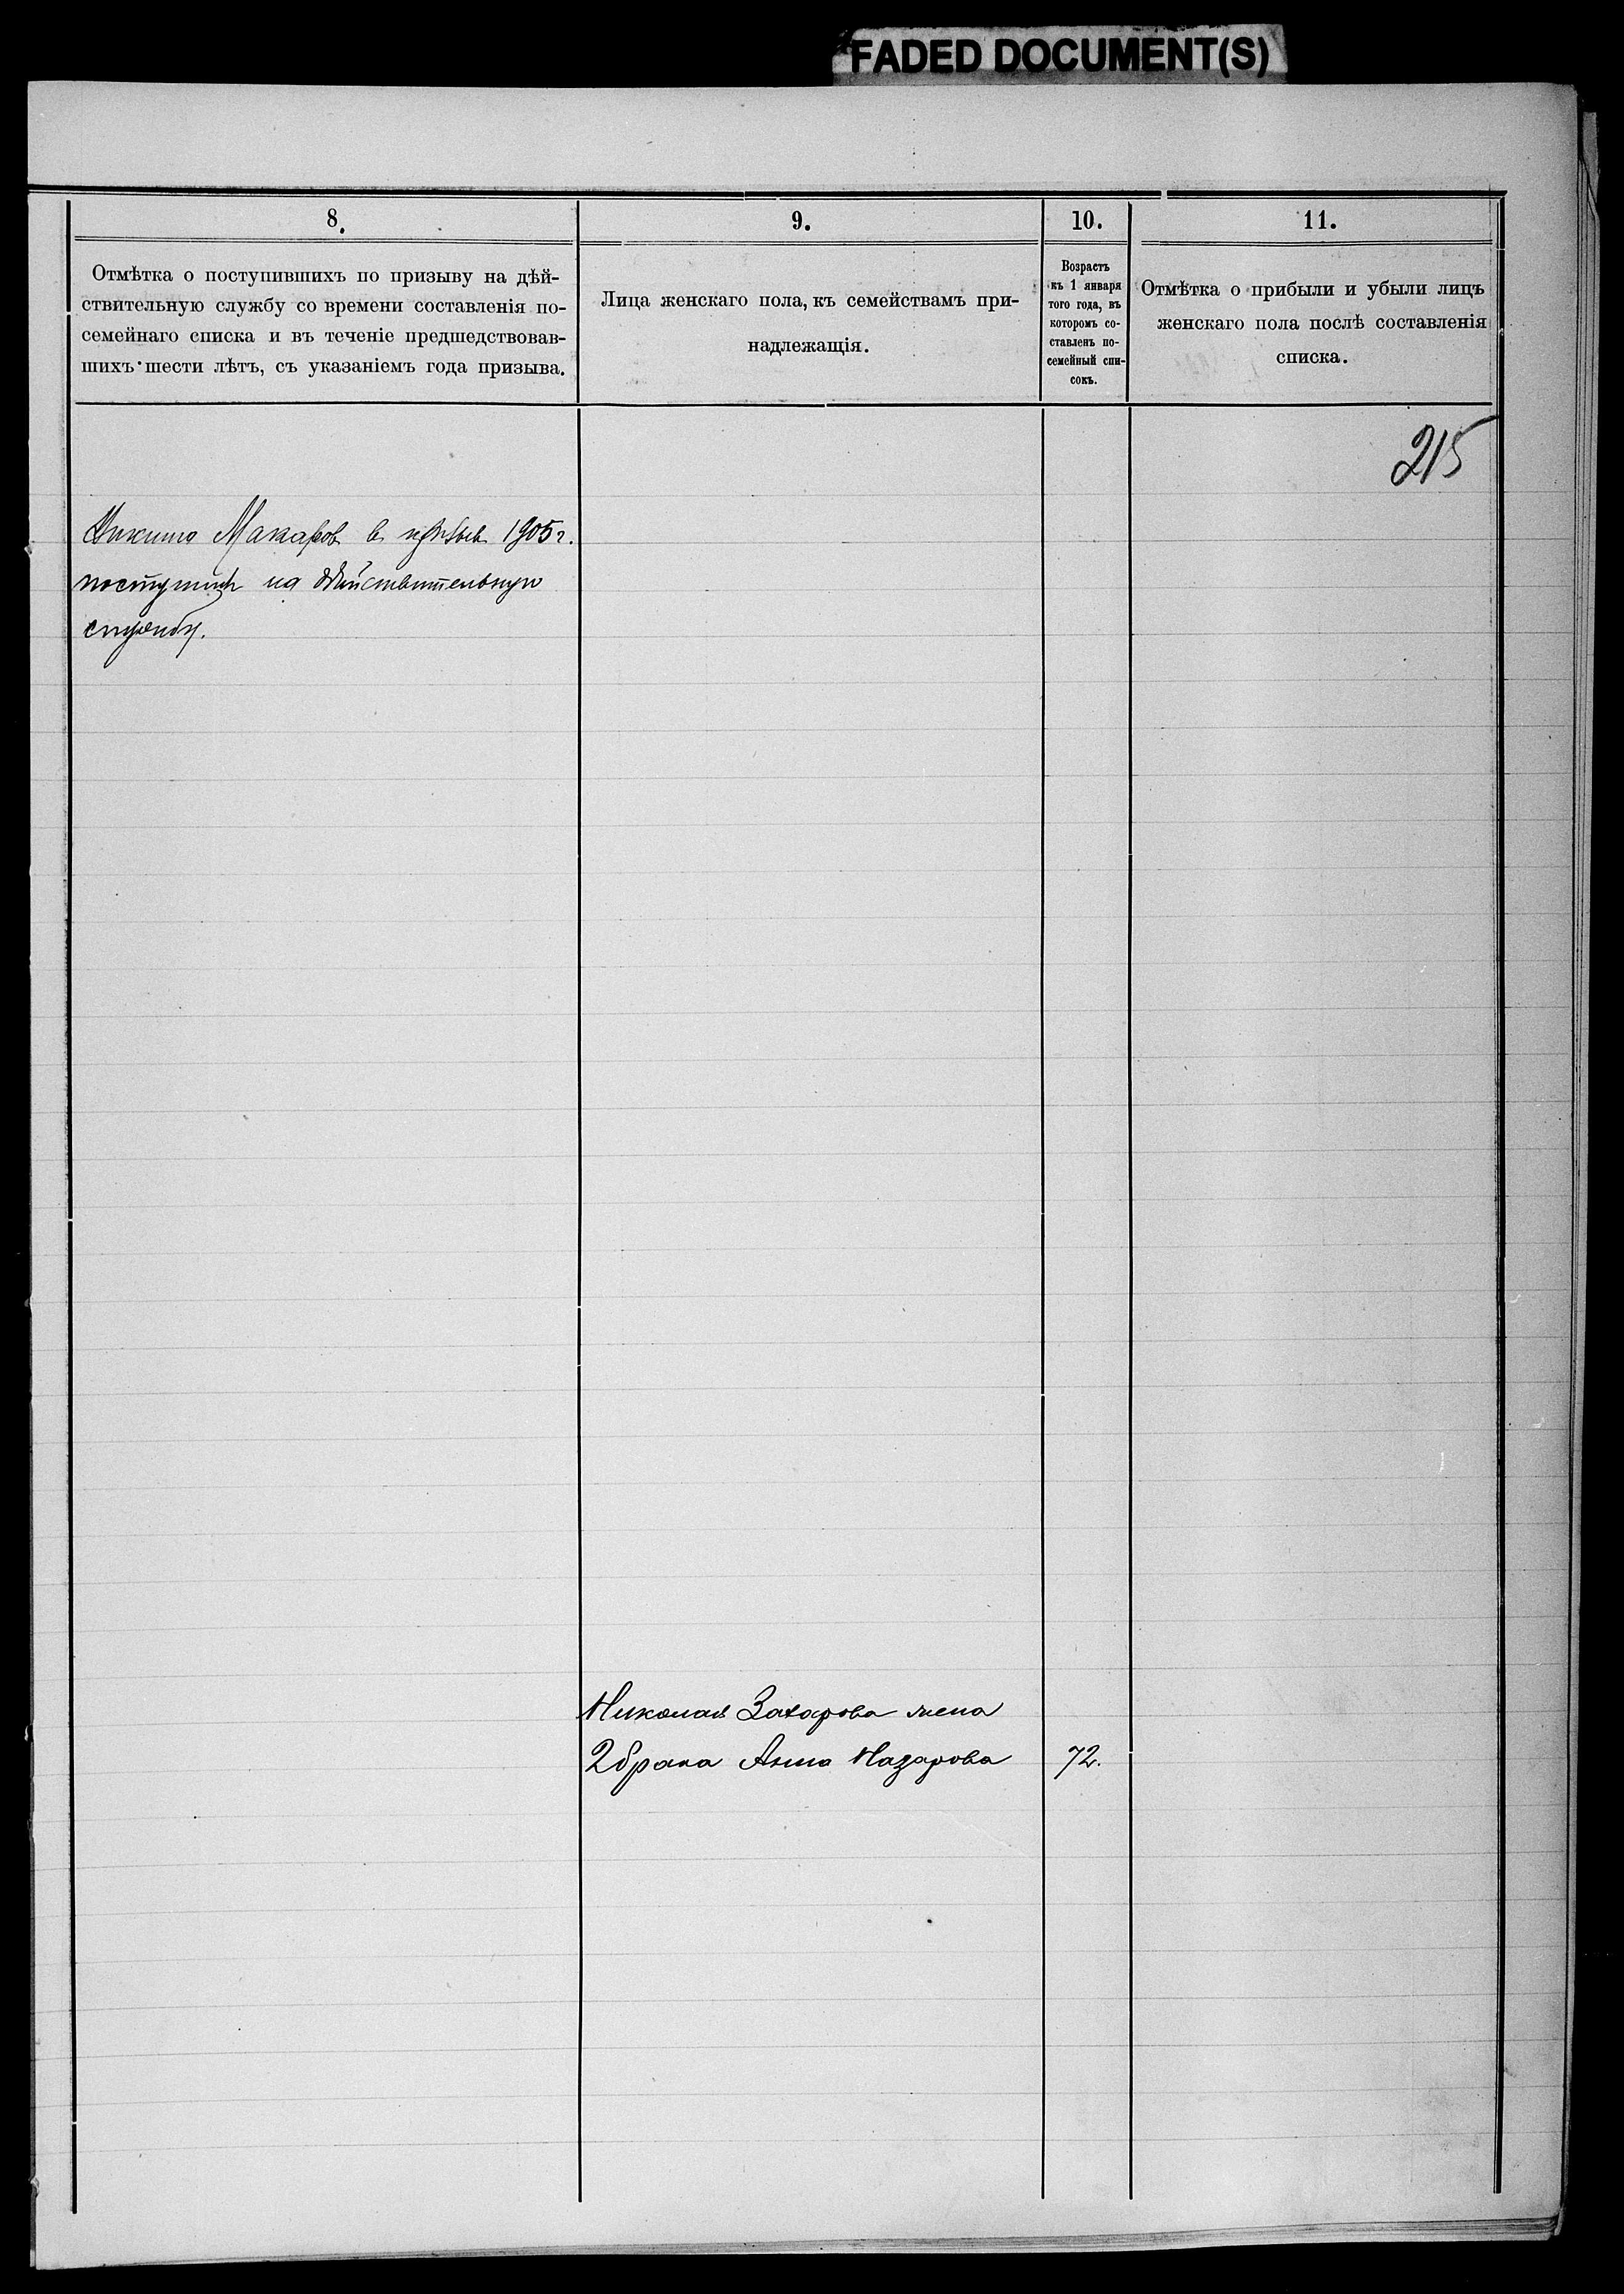 FADED DOCUMENT(S)
8.
Отмѣтка о поступившихъ по призыву на дѣй-
ствительную службу со времени составленія по-
семейнаго списка и въ теченіе предшедствовав-
шихъ шести лѣтъ, съ указаніемъ года призыва.
9.
Лица женскаго пола, къ семействамъ при-
надлежащія.
10.
Возрастъ
къ 1 января
того года, въ
которомъ со-
ставленъ по-
семейный спи-
сокъ.
11.
Отмѣтка о прибыли и убыли лицъ
женскаго пола послѣ составленія
списка.
215
Никита Макаров в призыв 1905 г.
поступил на действительную
службу.
Николая Захарова жена
2 брака Анна Назарова 72.